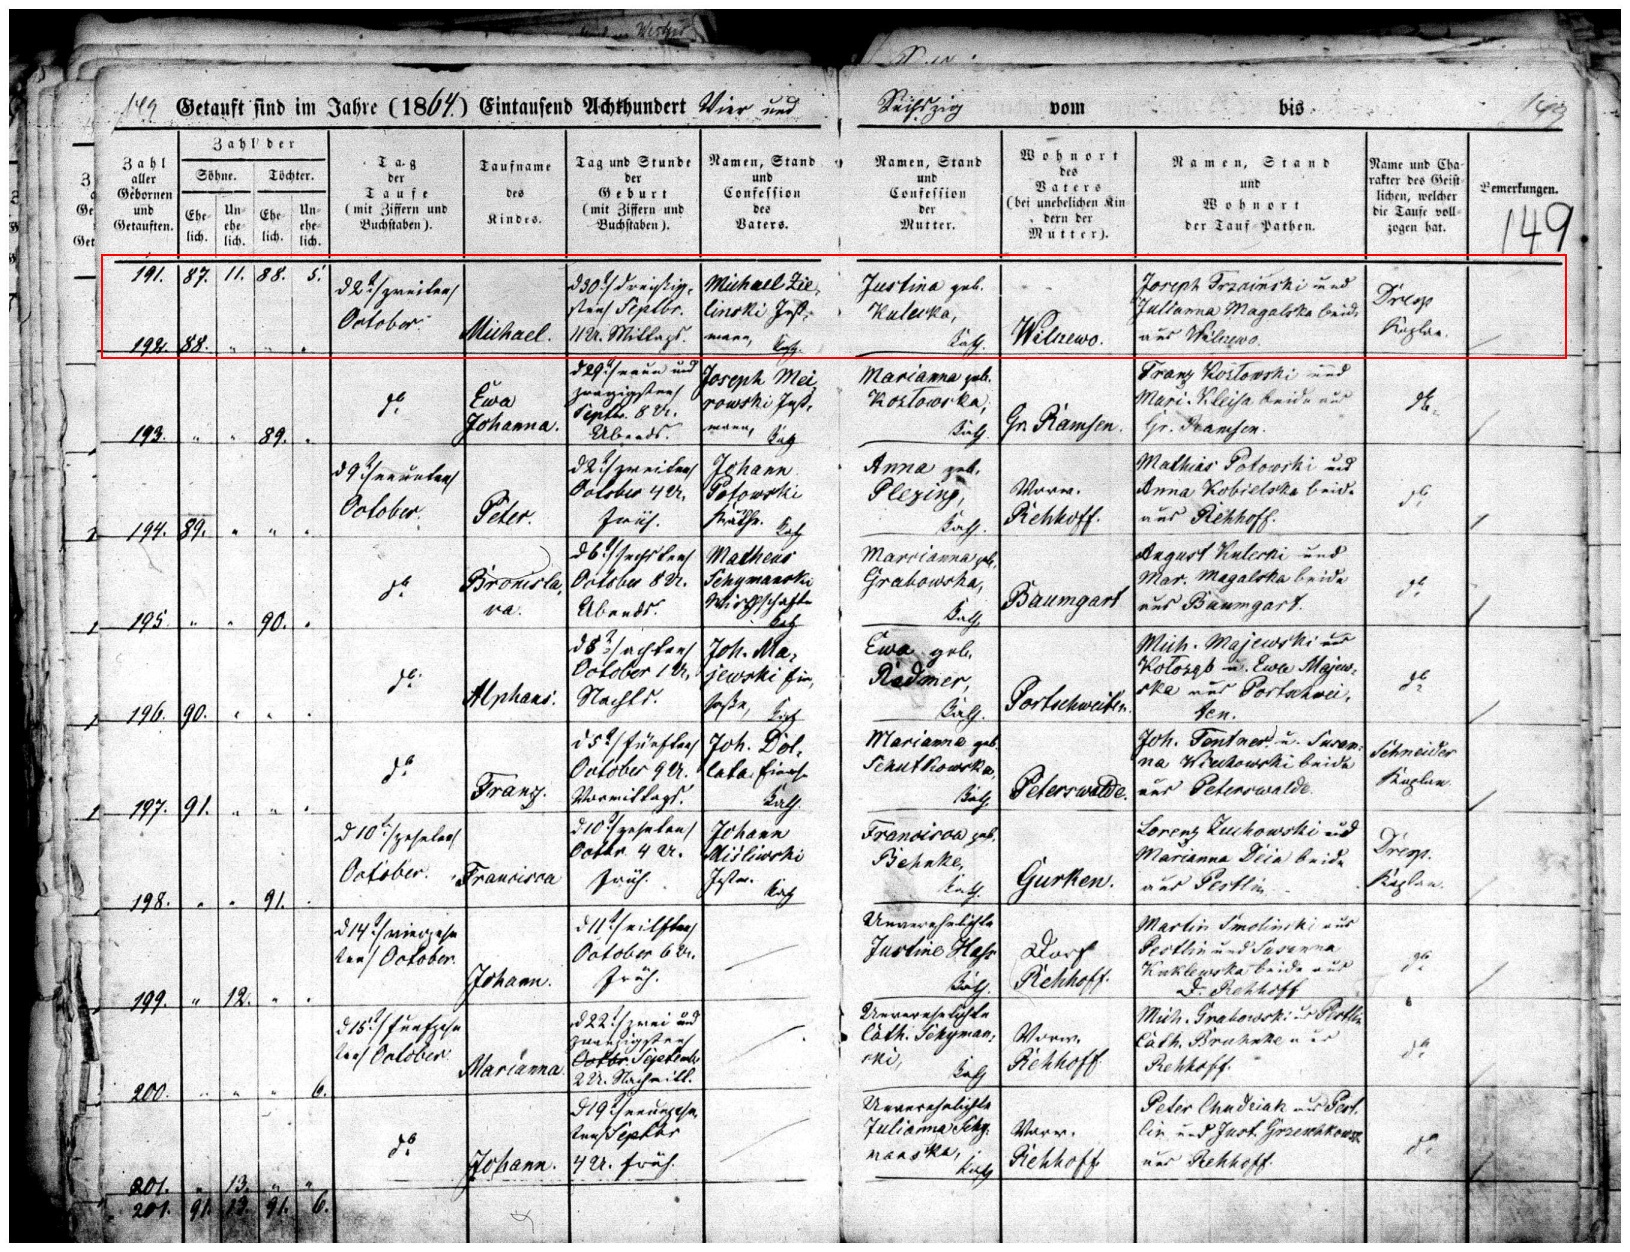 149 Getauft sind im Jahre (1864.) Eintausend Achthundert Vier und Sechszig vom bis 149
149
Zahl aller Gebornen und Getauften.
Zahl der
Söhne. Töchter.
Ehelich. Unehelich. Ehelich. Unehelich.
Tag der Taufe (mit Ziffern und Buchstaben).
Taufname des Kindes.
Tag und Stunde der Geburt (mit Ziffern und Buchstaben).
Namen, Stand und Confession des Vaters.
Namen, Stand und Confession der Mutter.
Wohnort des Vaters (bei unehelichen Kindern der Mutter).
Namen, Stand und Wohnort der Tauf-Pathen.
Name und Charakter des Geistlichen, welcher die Taufe vollzogen hat.
Bemerkungen.
191. 87. 11. 88. 5.
d 2t/zweiten/ October. Michael. d 30t/dreißigsten/ Septbr. 11 U. Mittags. Michael Zielinski Instmann, Kath. Justina geb. Kuleska, Kath. Wilczewo. Joseph Trzcinski und Julianna Magalska beide aus Wilczewo. Kaplan.
192. 88. " " "
do Ewa Johanna. d 29t/neun und zwanzigsten/ Septbr. 8 U. Abends. Joseph Meirowski Instmann, Kath Marianna geb. Kostowska, Kath. Gr. Ramsen. Franz Kostowski und beide aus Gr. Ramsen. do
193. " " 89. "
d 9t/neunten/ October. Peter. d 2t/zweiten/ October 4 U. früh. Johann Potowski Käthn. Kath Anna geb. Plezing, Kath. Vorw. Rehhoff. Mathias Potowski und Anna Kobielska beide aus Rehhoff. do
194. 89. " " "
do Bronislava. d 6t/sechsten/ October 8 U. Abends. Matheus Schymanski Kath Marrianna geb. Grabowska, Kath. Baumgart August Kulecki und Mar. Magalska beide aus Baumgart. do
195. " " 90. "
do Alphans. d 8t/achten/ October 1 U. Nachts. Joh. Majewski Einsaße, Kath Ewa geb. Rådmer, Kath. Portschweiten. Mich. Majewski aus u. Ewa Majewska aus Portschweiten. do
196. 90. " " "
do Franz. d 5t/fünften/ October 9 U. Vormittags. Joh. Dollata Kath. Marianna geb. Schutkowska, Kath. Peterswalde. Joh. Tentner u. Susanna beide aus Peterswalde. Schneider Kaplan.
197. 91. " " "
d 10t/zehnten/ October. Francisca d 10t/zehnten/ Octbr. 4 U. früh. Johann Misliwski Instm. Kath Francisca geb. Behnke, Kath. Gurken. Lorenz Zuchowski und Marianna beide aus Pestlin. Kaplan.
198. " " 91. "
d 14t/vierzehnten/ October. Johann. d 11t/eilften/ October 6 U. früh. Unverehelichte Justine Hass Kath. Dorf Rehhoff. Martin Smolinski aus Pestlin und Susanna Kuklewska beide aus D. Rehhoff do
199. " 12. " "
d 15t/funfzehnten/ October Marianna. d 22t/zwei und zwanzigsten/ Octbr. Septembr 2 U. Nachmitt. Unverehelichte Cath. Schymanski, Kath Vorw. Rehhoff Mich. Grabowski aus Pestlin Cath. Bruhnke aus Rehhoff. do
200. " " " 6.
do Johann. d 19t/neunzehnten/ Septbr 4 U. früh. Unverehelichte Julianna Schymanska, Kath Vorw. Rehhoff Peter Chudziak aus Pestlin und Just. aus Rehhoff. do
201. " 13. " "
201. 91. 13. 91. 6.